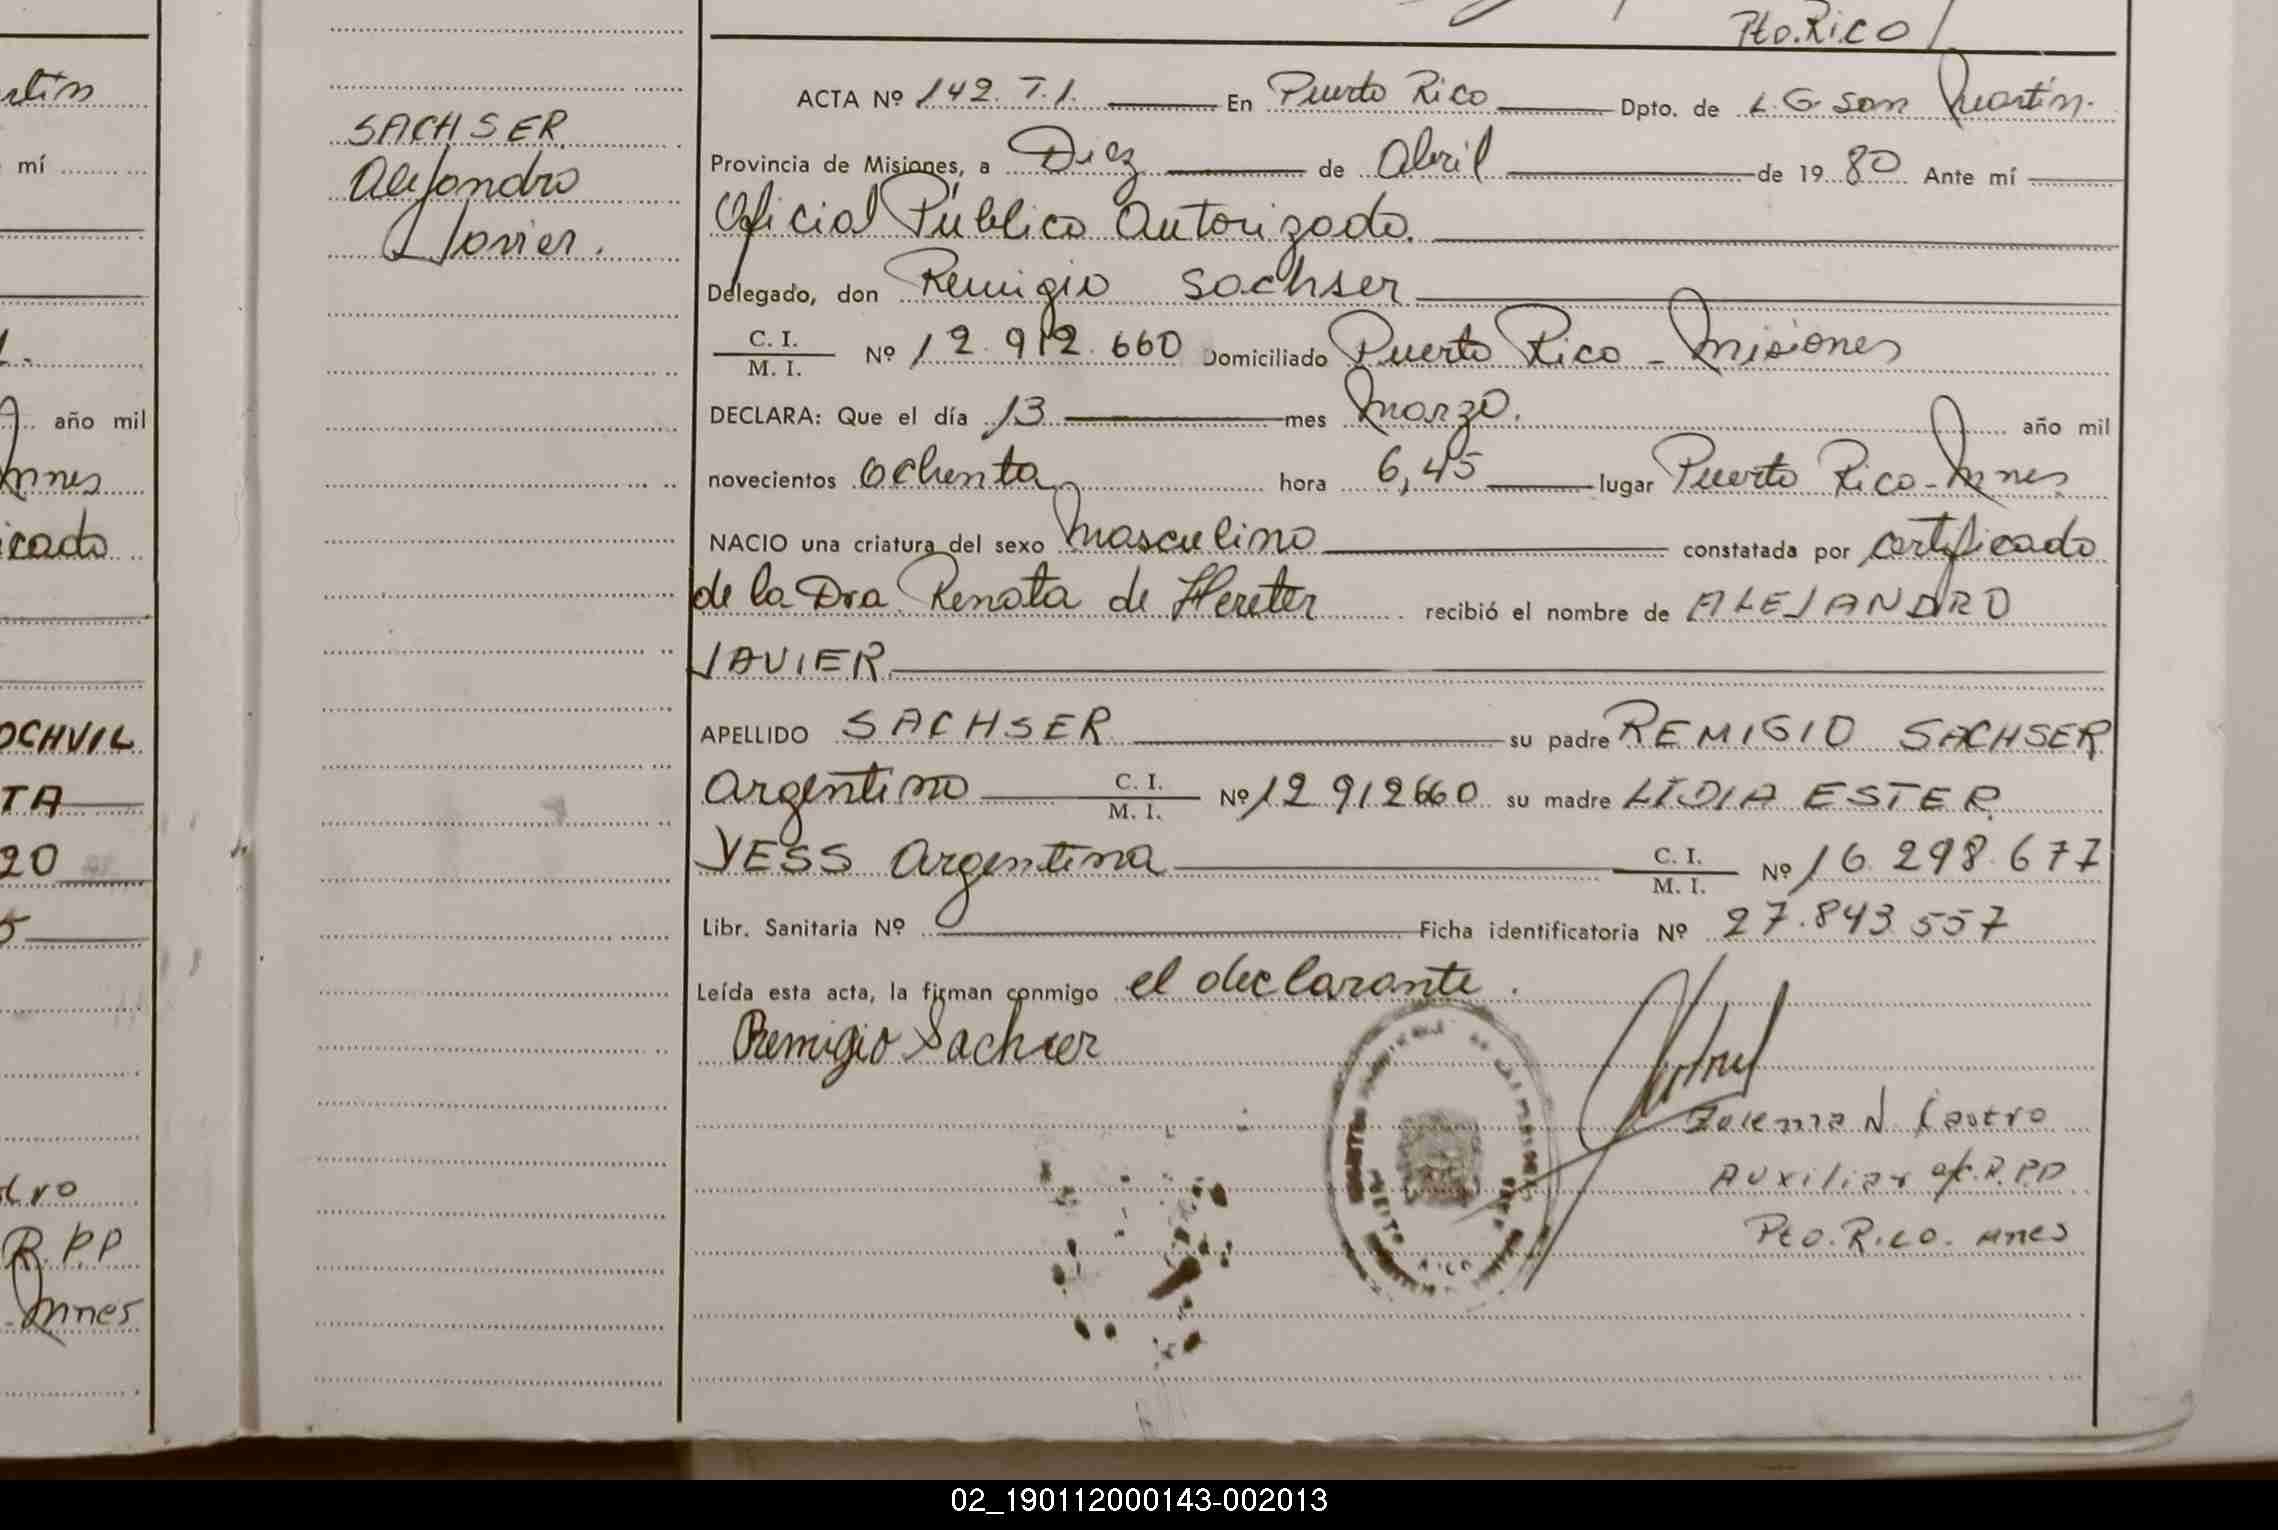 Pto.Rico
rtin
mí
año mil
nnes
icado
OCHVIL
TA
20
5
R.P.P
Mnes
SACHSER
Alejandro
Javier.
ACTA Nº 142. T.1. En Puerto Rico Dpto. de L.G. San Martín.
Provincia de Misiones, a Diez de Abril de 1980 Ante mí
Oficial Público Autorizado.
Delegado, don Remigio Sachser
C. I.
M. I.
Nº 12.912.660 Domiciliado Puerto Rico - Misiones
DECLARA: Que el día 13 mes Marzo. año mil
novecientos ochenta hora 6,45 lugar Puerto Rico-Mnes
NACIO una criatura del sexo Masculino constatada por certificado
de la Dra. Renata de Hereter recibió el nombre de ALEJANDRO
JAVIER
APELLIDO SACHSER su padre REMIGIO SACHSER
Argentino C. I.
M. I.
Nº 12 912660 su madre LIDIA ESTER
YESS Argentina C. I.
M. I.
Nº 16.298.677
Libr. Sanitaria Nº Ficha identificatoria Nº 27.843.557
Leída esta acta, la firman conmigo el declarante.
Remigio Sachser
N. Castro
Auxiliar of. R.P.P
Pto.Rico. Mnes
02_190112000143-002013